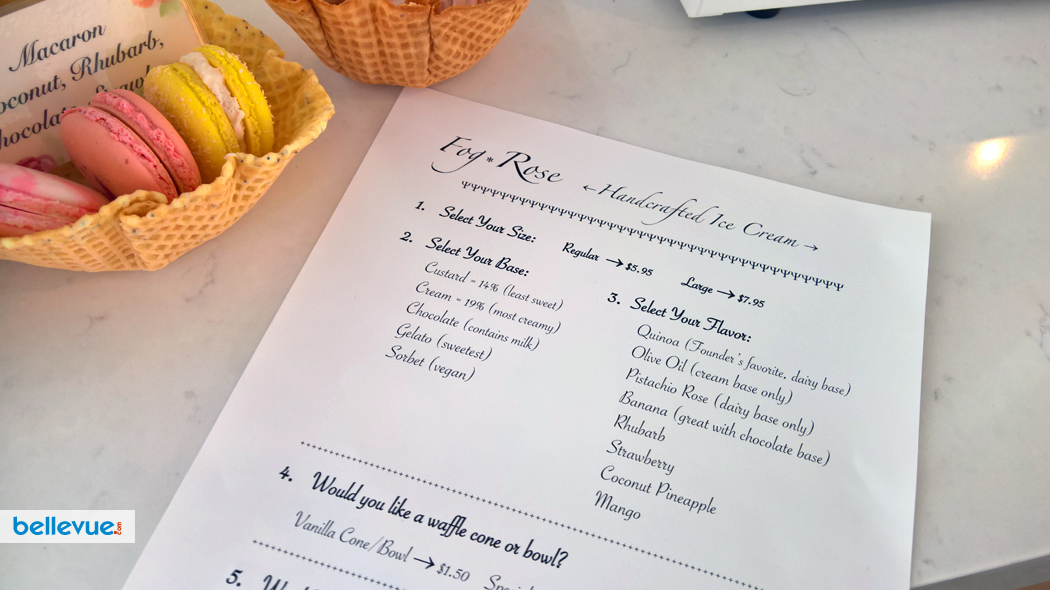 Macaron
Rhubarb,
Fog * Rose ←Handcrafted Ice Cream →
1. Select Your Size: Regular → $5.95 Large → $7.95
2. Select Your Base:
Custard = 14% (least sweet)
Cream = 19% (most creamy)
Chocolate (contains milk)
Gelato (sweetest)
Sorbet (vegan)
3. Select Your Flavor:
Quinoa (Founder's favorite, dairy base)
Olive Oil (cream base only)
Pistachio Rose (dairy base only)
Banana (great with chocolate base)
Rhubarb
Strawberry
Coconut Pineapple
Mango
4. Would you like a waffle cone or bowl?
Vanilla Cone/Bowl → $1.50
5.
bellevue.com